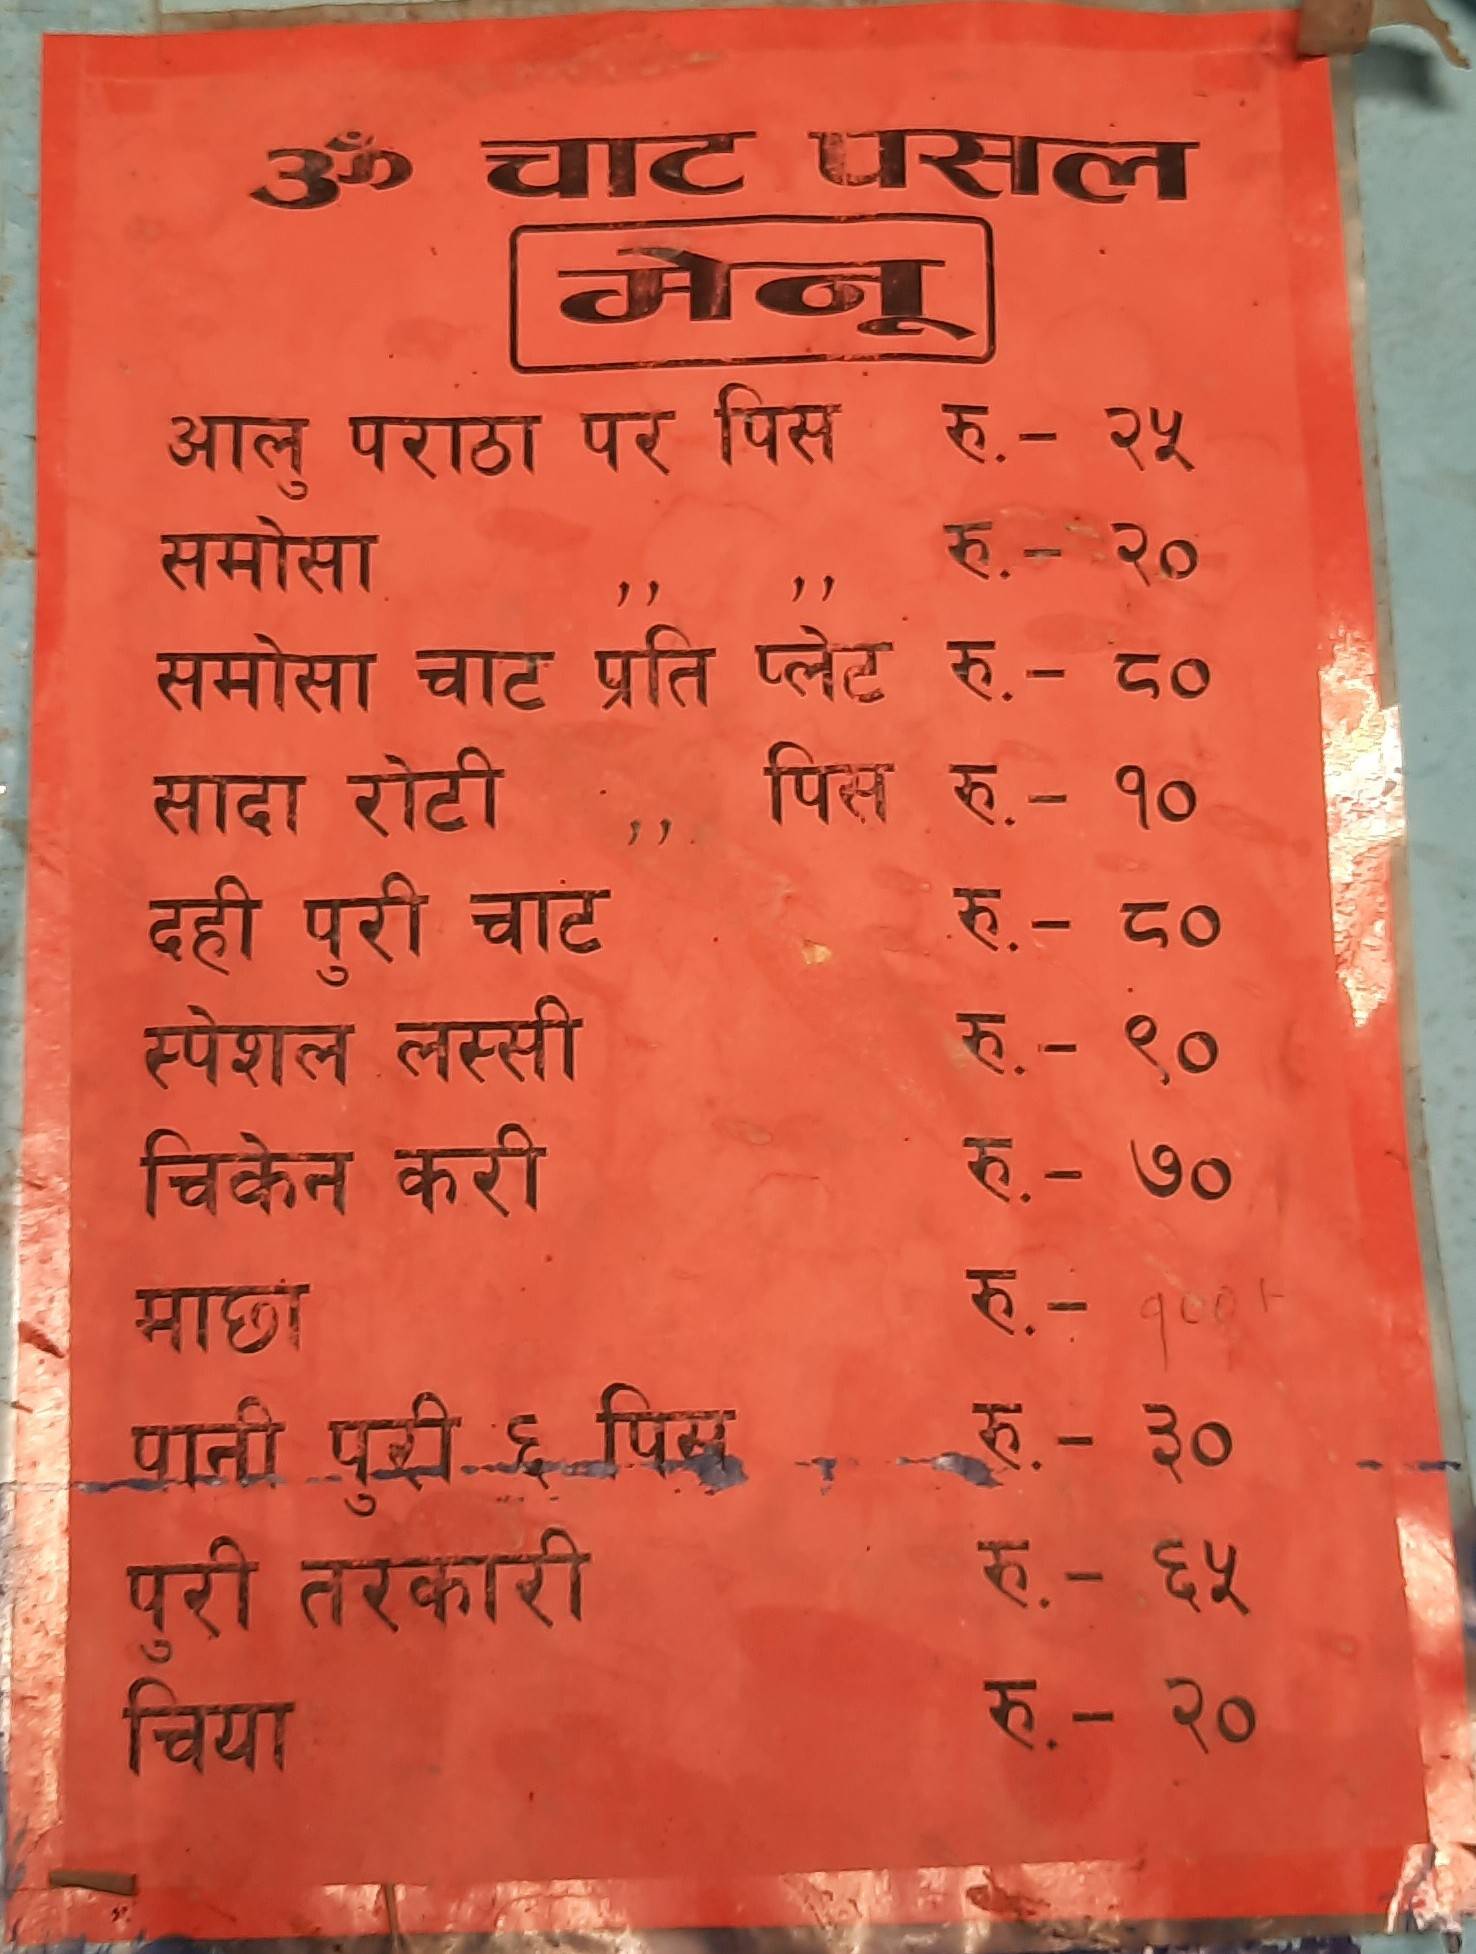 ॐ चाट पसल
मेनू
आलु पराठा पर पिस रु.- २५
समोसा ,, ,, रु.- २०
समोसा चाट प्रति प्लेट रु.- ८०
सादा रोटी ,, पिस रु.- १०
दही पुरी चाट रु.- ८०
स्पेशल लस्सी रु.- ९०
चिकेन करी रु.- ७०
माछा रु.-
पानी पुरी ६ पिस रु.- ३०
पुरी तरकारी रु.- ६५
चिया रु.- २०